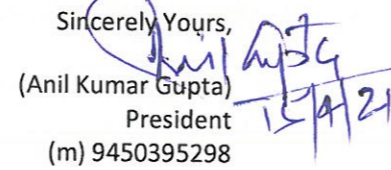 Sincerely Yours,
Anil Gupta
(Anil Kumar Gupta)
15/4/21
President
(m) 9450395298